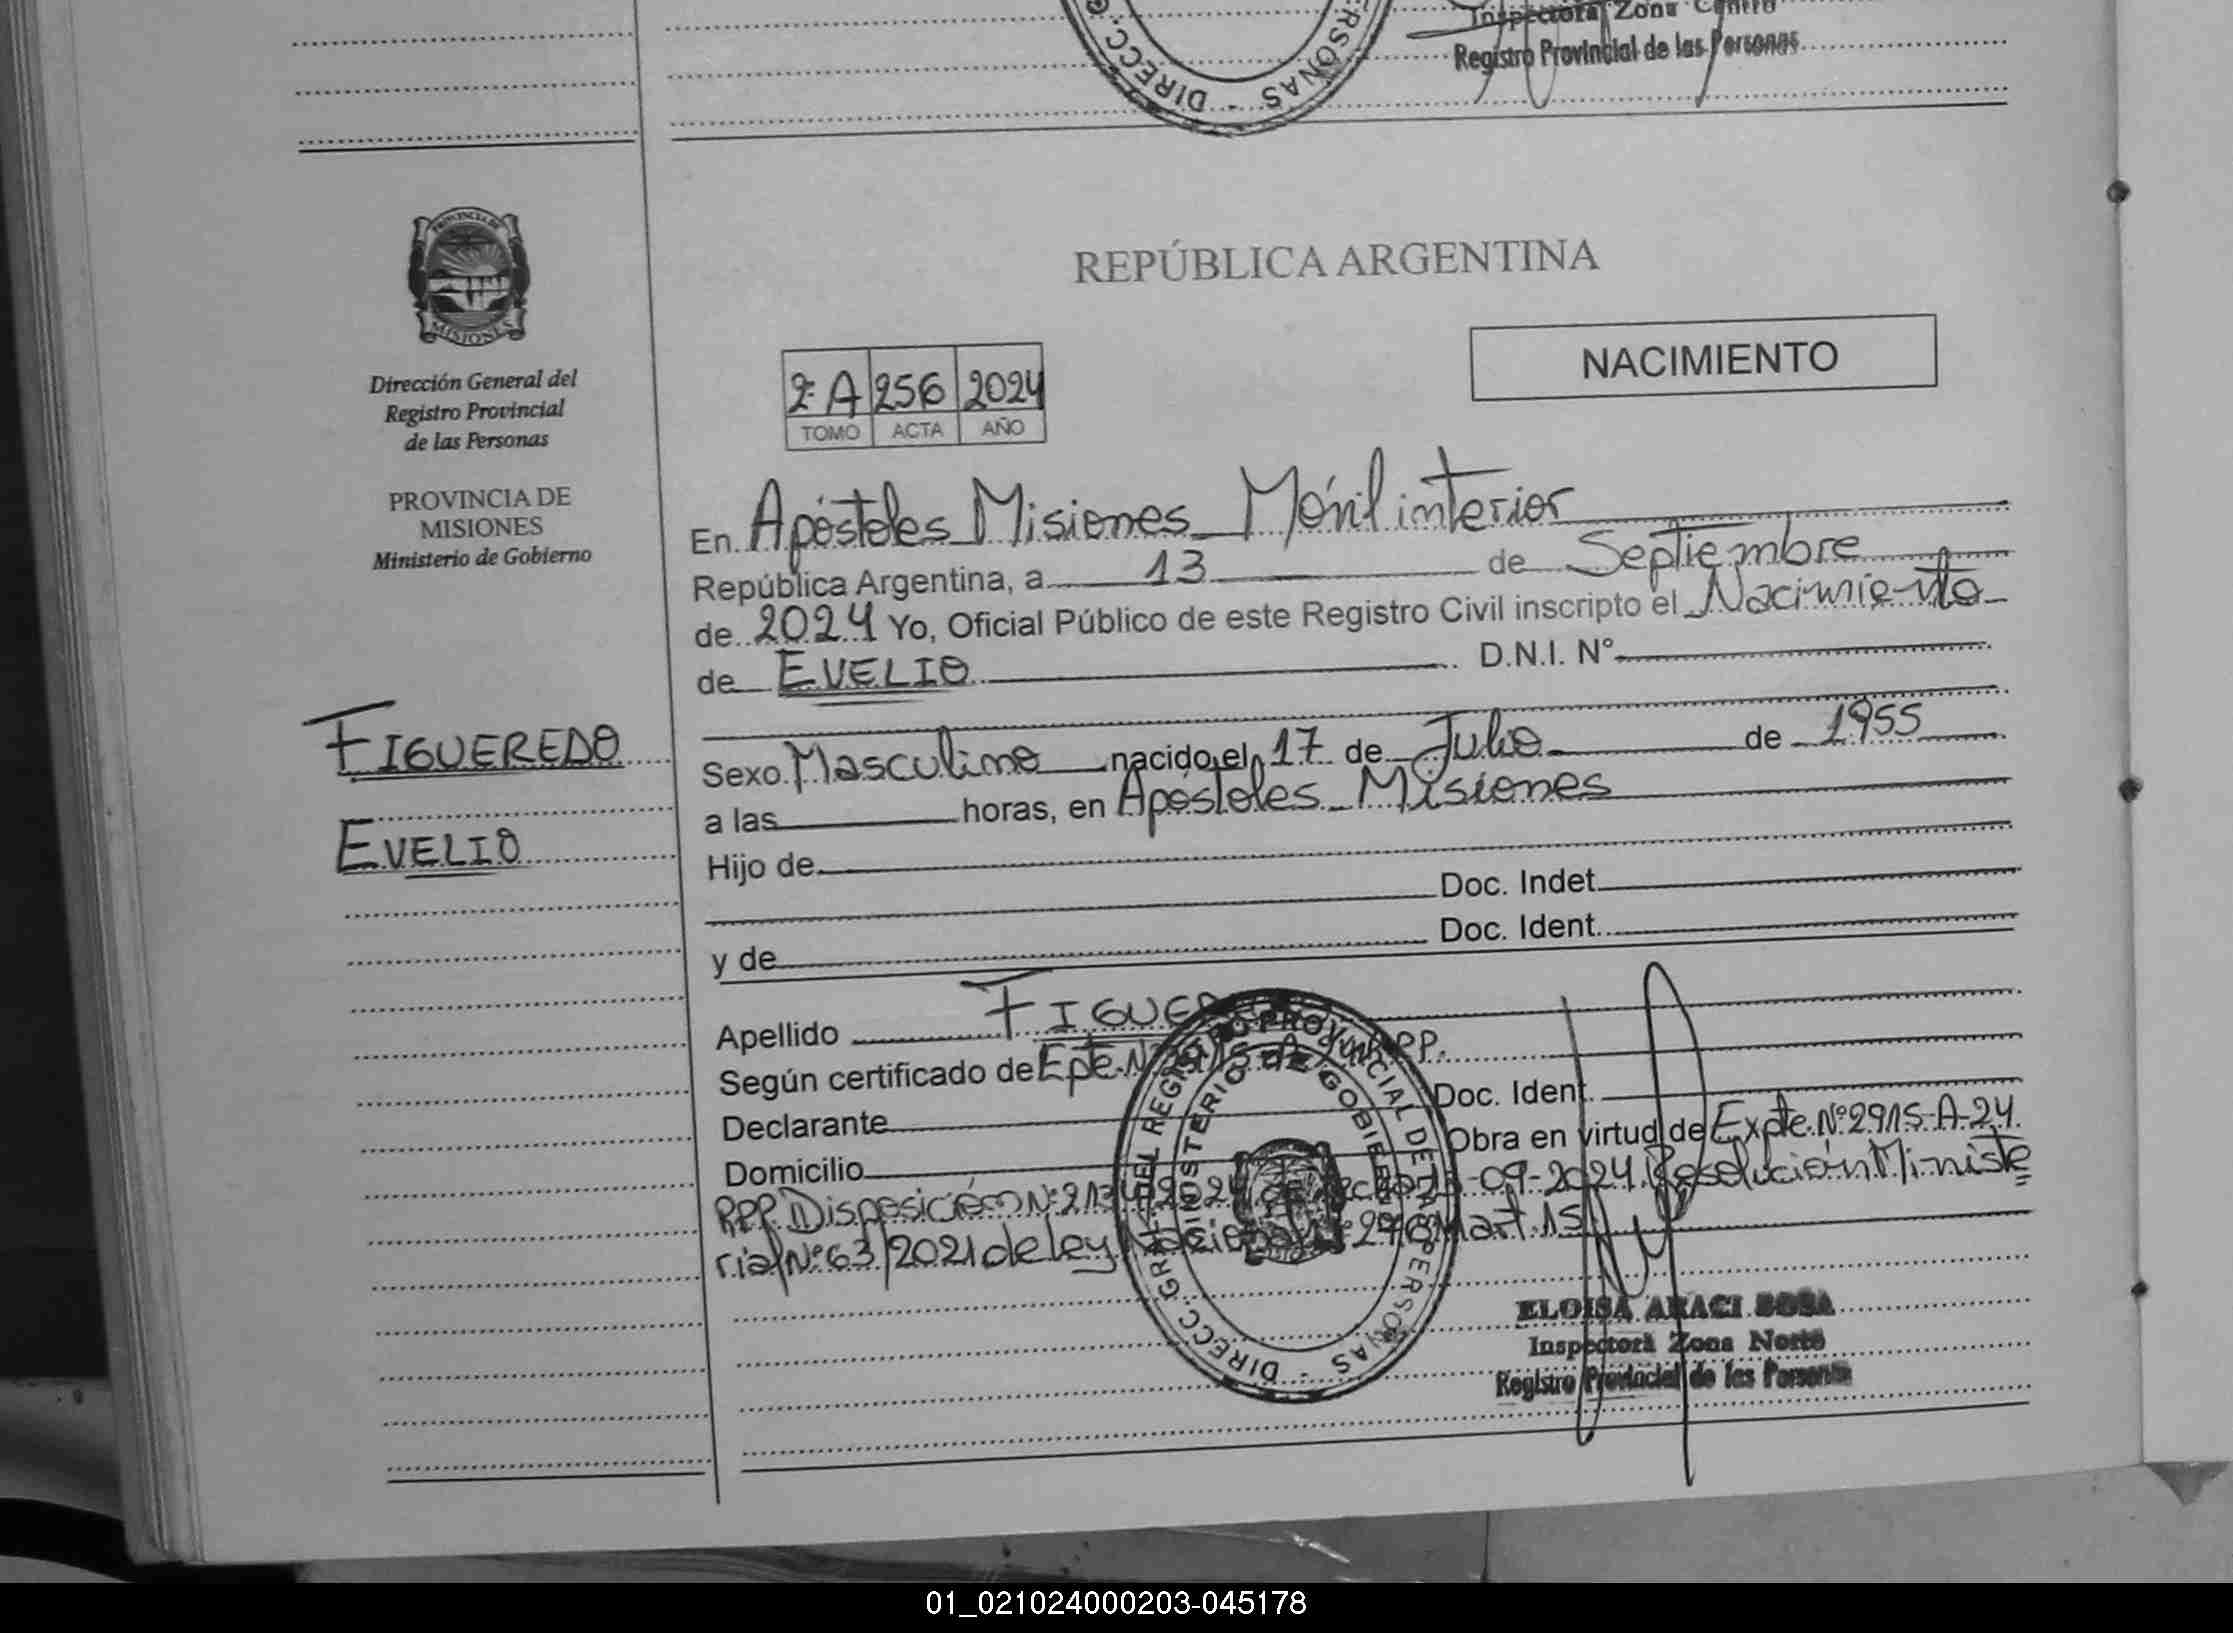 Inspectora Zona Centro
Registro Provincial de las Personas
DIRECC. G PERSONAS -
PROVINCIA DE
MISIONES
Dirección General del
Registro Provincial
de las Personas
PROVINCIA DE
MISIONES
Ministerio de Gobierno
FIGUEREDO
EVELIO
REPÚBLICA ARGENTINA
NACIMIENTO
2º A 256 2024
TOMO ACTA AÑO
En Apóstoles Misiones Móvil interior
República Argentina, a 13 de Septiembre
de 2024 Yo, Oficial Público de este Registro Civil inscripto el Nacimiento
de EVELIO D.N.I. Nº
Sexo Masculino nacido el 17 de Julio de 1955
a las horas, en Apóstoles Misiones
Hijo de
Doc. Indet.
y de Doc. Ident.
Apellido FIGUE
Según certificado de Epte. Nº RPP.
Declarante Doc. Ident.
Domicilio Obra en virtud de Expte. Nº 2915-A-24.
RPP. Disposición Nº 213 2024 de fecha -09-2024 Resolución Ministe
rial Nº 63/2021 de ley Nacional Nº art. 15
DIRECC. GRAL. DEL REGISTRO PROVINCIAL DE LAS PERSONAS -
MINISTERIO DE GOBIERNO
ELOISA ARACI SOSA
Inspectora Zona Norte
Registro Provincial de las Personas
01_021024000203-045178